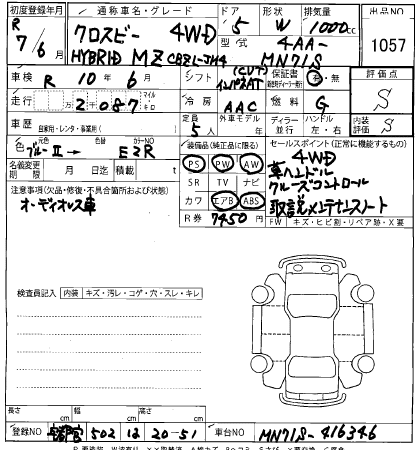 初度登録年月 通称車名・グレード ドア 形状 排気量 出品NO
R 7/6月 クロスビー 4WD 5 W 1000cc
HYBRID MZ CBZL-JH4 型式 4AA-MN71S 1057
車検 R 10年6月 シフト インパネAT 保証書 有・無 評価点
走行 万2087 マイル キロ 冷房 AAC 燃料 G S
車歴 自家用・レンタ・事業用( ) 定員 5人 外車モデル 年 ディーラー 並行 ハンドル 左・右 内装評価 S
色 ブルーⅡ→ 色替 カラーNO EZR 装備品(純正品に限る) セールスポイント(正常に機能するもの)
名義変更期限 月 日迄 積載 t PS PW AW 4WD
注意事項(欠品・修復・不具合箇所および状態) SR TV ナビ 革ハンドル
オーディオレス車 カワ エアB ABS クルーズコントロール
R券 7450 取説メンテナンスノート
FW キズ・ヒビ割・リペア跡・X要
検査員記入 内装 キズ・汚レ・コゲ・穴・スレ・キレ
長さ cm 幅 cm 高さ cm
登録NO 宇都宮 502 は 20-51 車台NO MN71S-416346